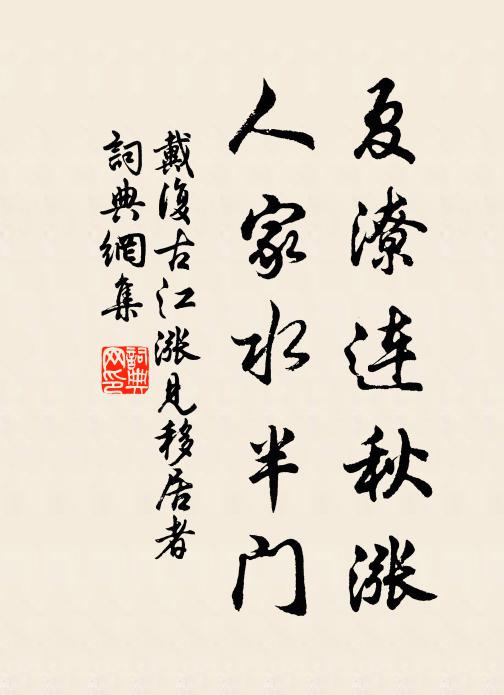 夏潦连秋涨
人家水半门
戴復古江漲見移居者
詞典網集
詞典网印